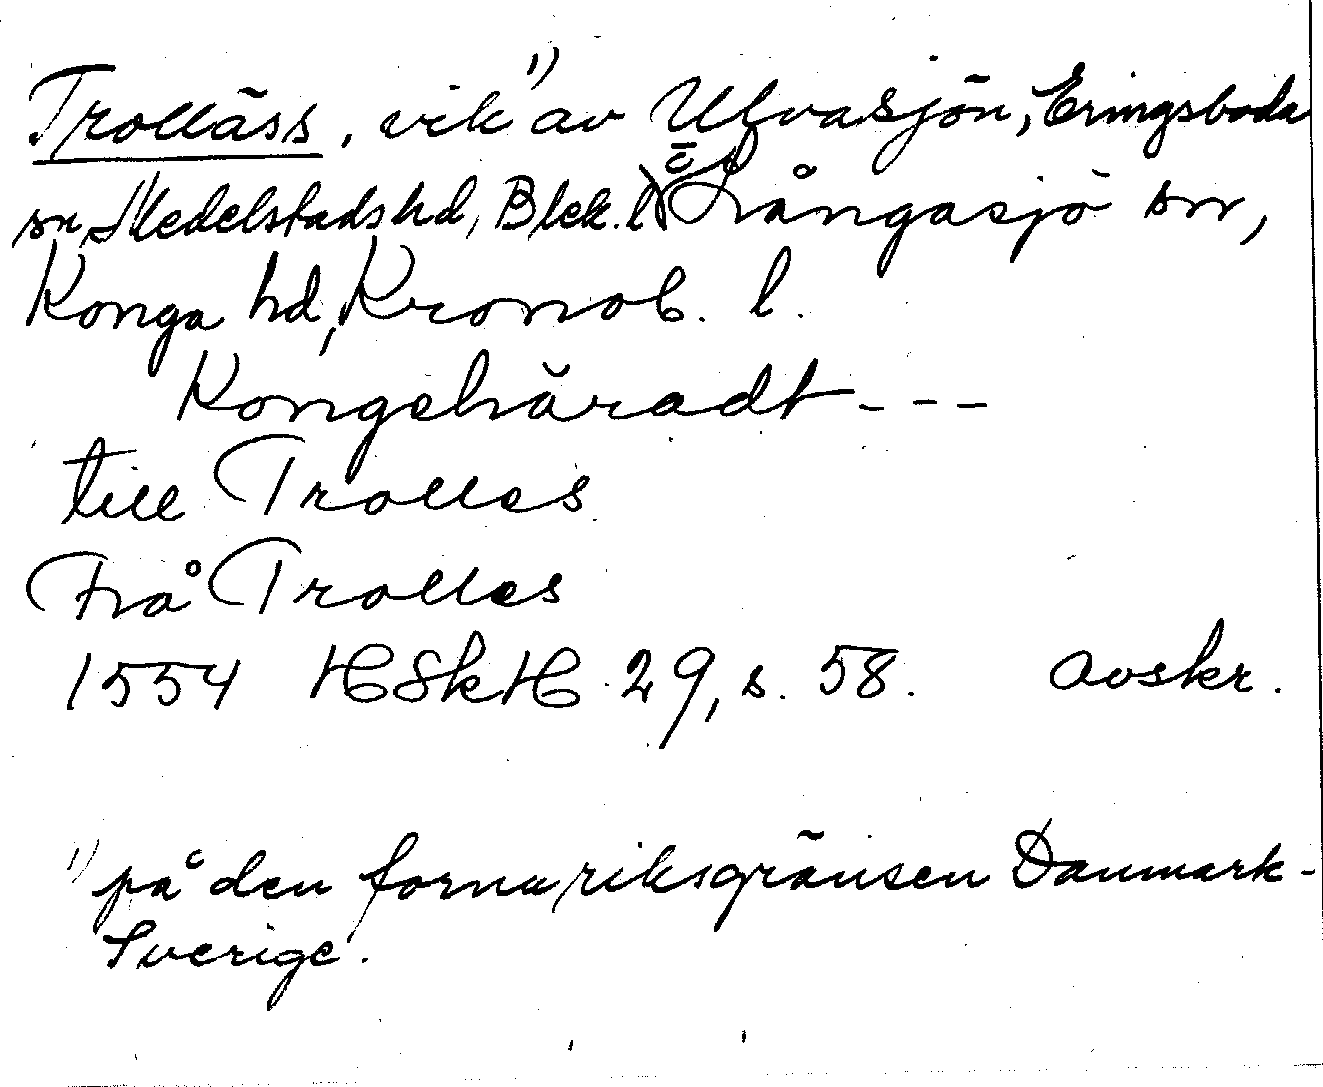 Trolläss, vik 1) av Ulvasjön, Eringsboda
sn, Medelstads hd, Blek. l. o Långasjö sn,
Konga hd, Kronob. l.
Kongehäradt - - -
till Trolles
Frå Trolles
1554 HSkH 29, s. 58. avskr.
1) på den forna riksgränsen Danmark-
Sverige.